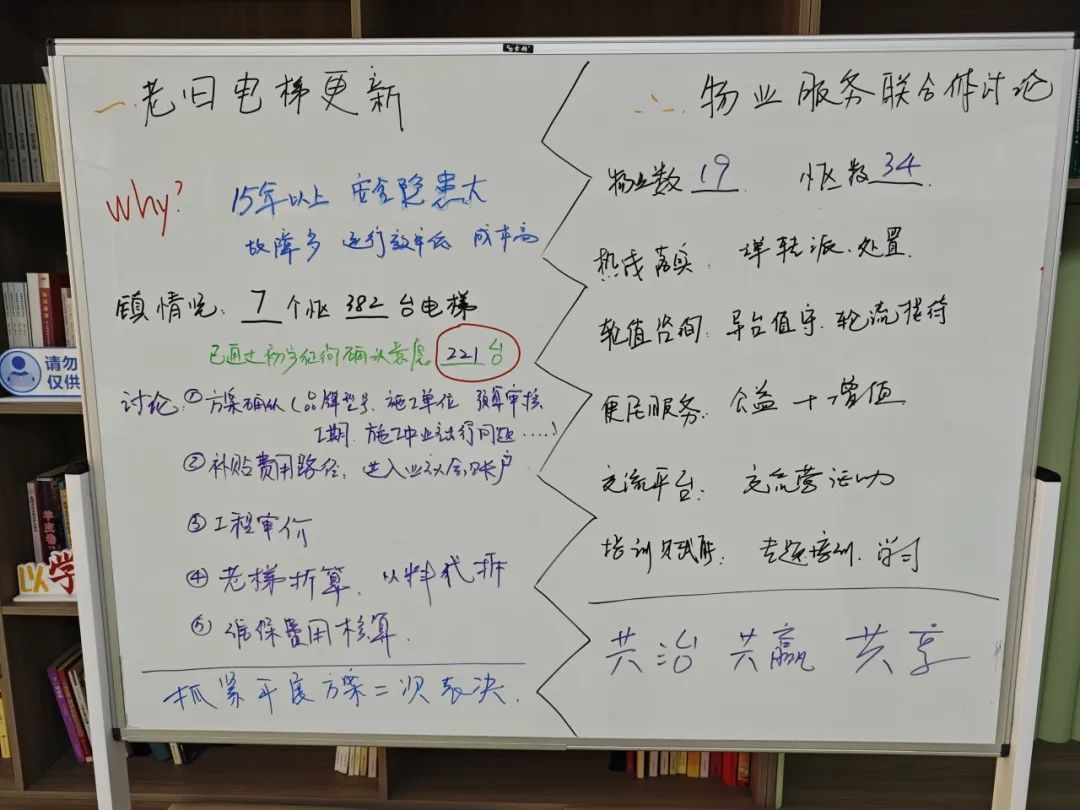 一. 老旧电梯更新
Why?
15年以上 安全隐患大
故障多 运行效率低 成本高
镇情况: 7 个小区 382 台电梯
已通过初步征询确认意愿 221 台
讨论: ① 方案确认 (品牌型号. 施工单位 预算审核
工期. 施工中业主试行问题 ……)
② 补贴费用路径: 进入业议会账户
③ 工程审价
④ 老梯折算. 以料代拆
⑤ 维保费用核算.
抓紧开展方案二次表决.
二. 物业服务联合体讨论
物业数 19 小区数 34
热线落实: 详转派. 处置
轮值咨询: 导台值守. 轮流接待
便民服务: 公益 + 增值
交流平台:
培训 专题培训. 学习
共治 共赢 共享
请勿
仅供
以学